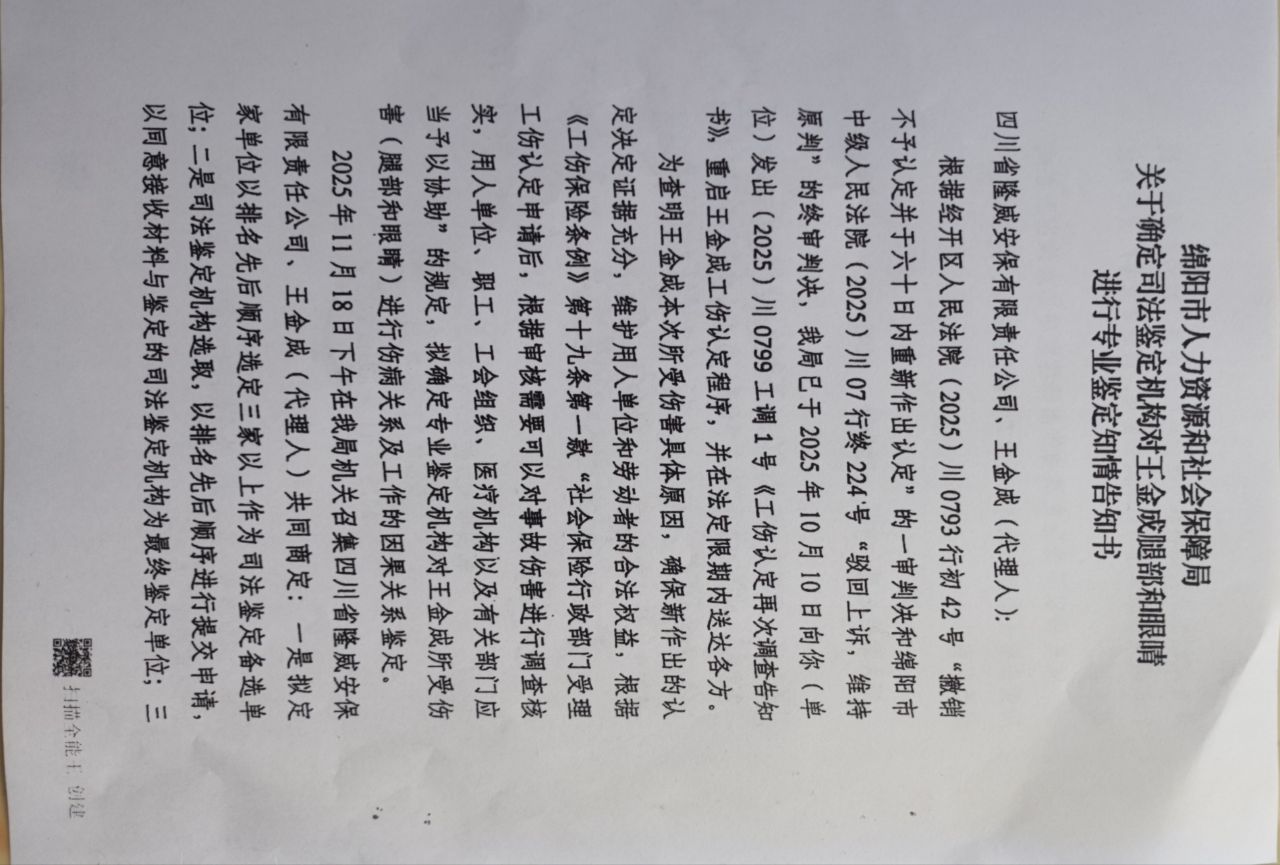 绵阳市人力资源和社会保障局
关于确定司法鉴定机构对王金成腿部和眼睛
进行专业鉴定知情告知书
四川省隆威安保有限责任公司、王金成（代理人）：
根据经开区人民法院（2025）川0793行初42号“撤销
不予认定并于六十日内重新作出认定”的一审判决和绵阳市
中级人民法院（2025）川07行终224号“驳回上诉，维持
原判”的终审判决，我局已于2025年10月10日向你（单
位）发出（2025）川0799工调1号《工伤认定再次调查告知
书》，重启王金成工伤认定程序，并在法定限期内送达各方。
为查明王金成本次所受伤害具体原因，确保新作出的认
定决定证据充分，维护用人单位和劳动者的合法权益，根据
《工伤保险条例》第十九条第一款“社会保险行政部门受理
工伤认定申请后，根据审核需要可以对事故伤害进行调查核
实，用人单位、职工、工会组织、医疗机构以及有关部门应
当予以协助”的规定，拟确定专业鉴定机构对王金成所受伤
害（腿部和眼睛）进行伤病关系及工作的因果关系鉴定。
2025年11月18日下午在我局机关召集四川省隆威安保
有限责任公司、王金成（代理人）共同商定：一是拟定
家单位以排名先后顺序选定三家以上作为司法鉴定备选单
位；二是司法鉴定机构选取，以排名先后顺序进行提交申请，
以同意接收材料与鉴定的司法鉴定机构为最终鉴定单位；三
扫描全能王 创建